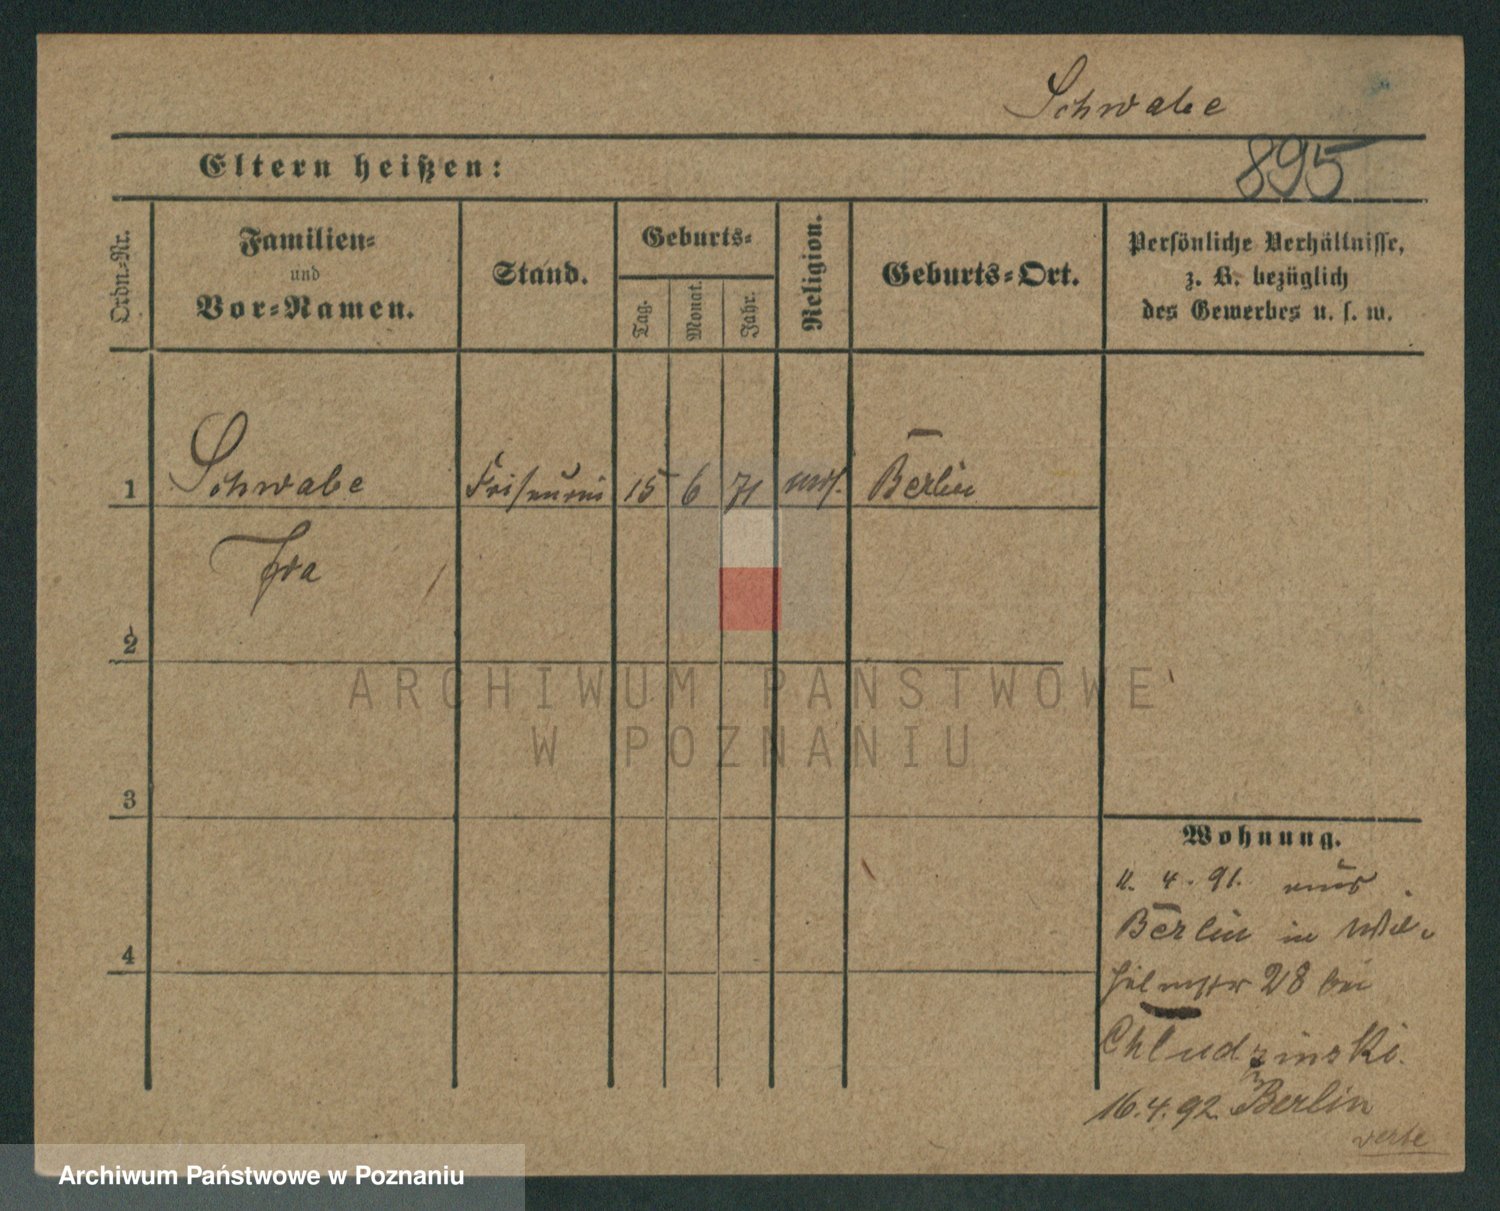 Schwabe
895
Eltern heißen:
Ordn.-Nr.
Familien-
und
Vor-Namen.
Stand.
Geburts-
Tag.
Monat.
Jahr.
Religion.
Geburts-Ort.
Persönliche Verhältnisse,
z. B. bezüglich
des Gewerbes u. s. w.
1 Schwabe 15 6 71 Berlin
2
3
4
ARCHIWUM PAŃSTWOWE
W POZNANIU
Wohnung.
11. 4. 91. aus
Berlin in Wil-
28 bei
Chludzinski.
16.4.92. Berlin
Archiwum Państwowe w Poznaniu